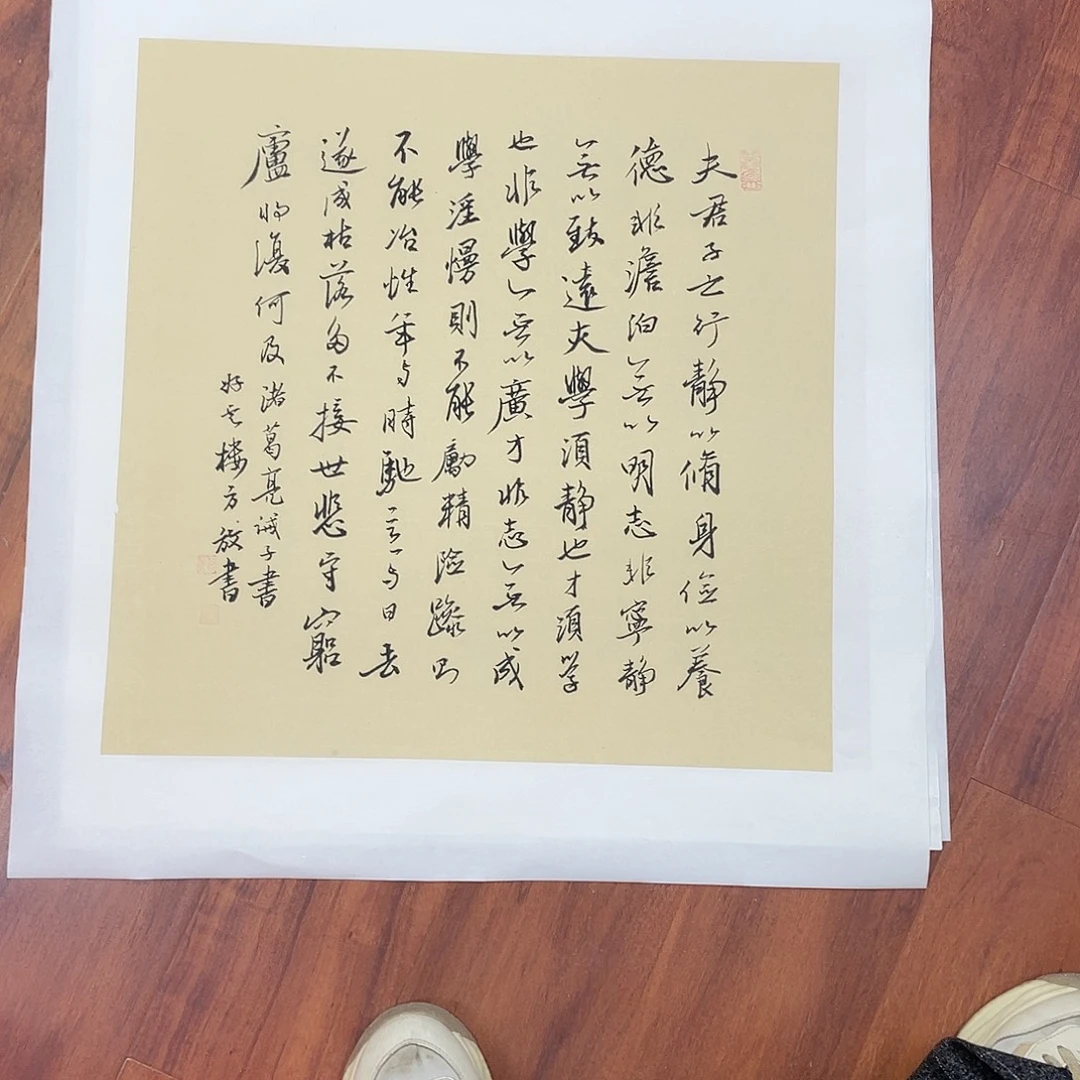 夫君子之行靜以脩身儉以養
德非澹泊無以明志非寧靜
無以致遠夫學須静也才須学
也非學無以廣才非志無以成
學淫慢則不能勵精險躁則
不能治性年与時馳意与日去
遂成枯落多不接世悲守窮
廬將復何及諸葛亮诫子書
楼方放書